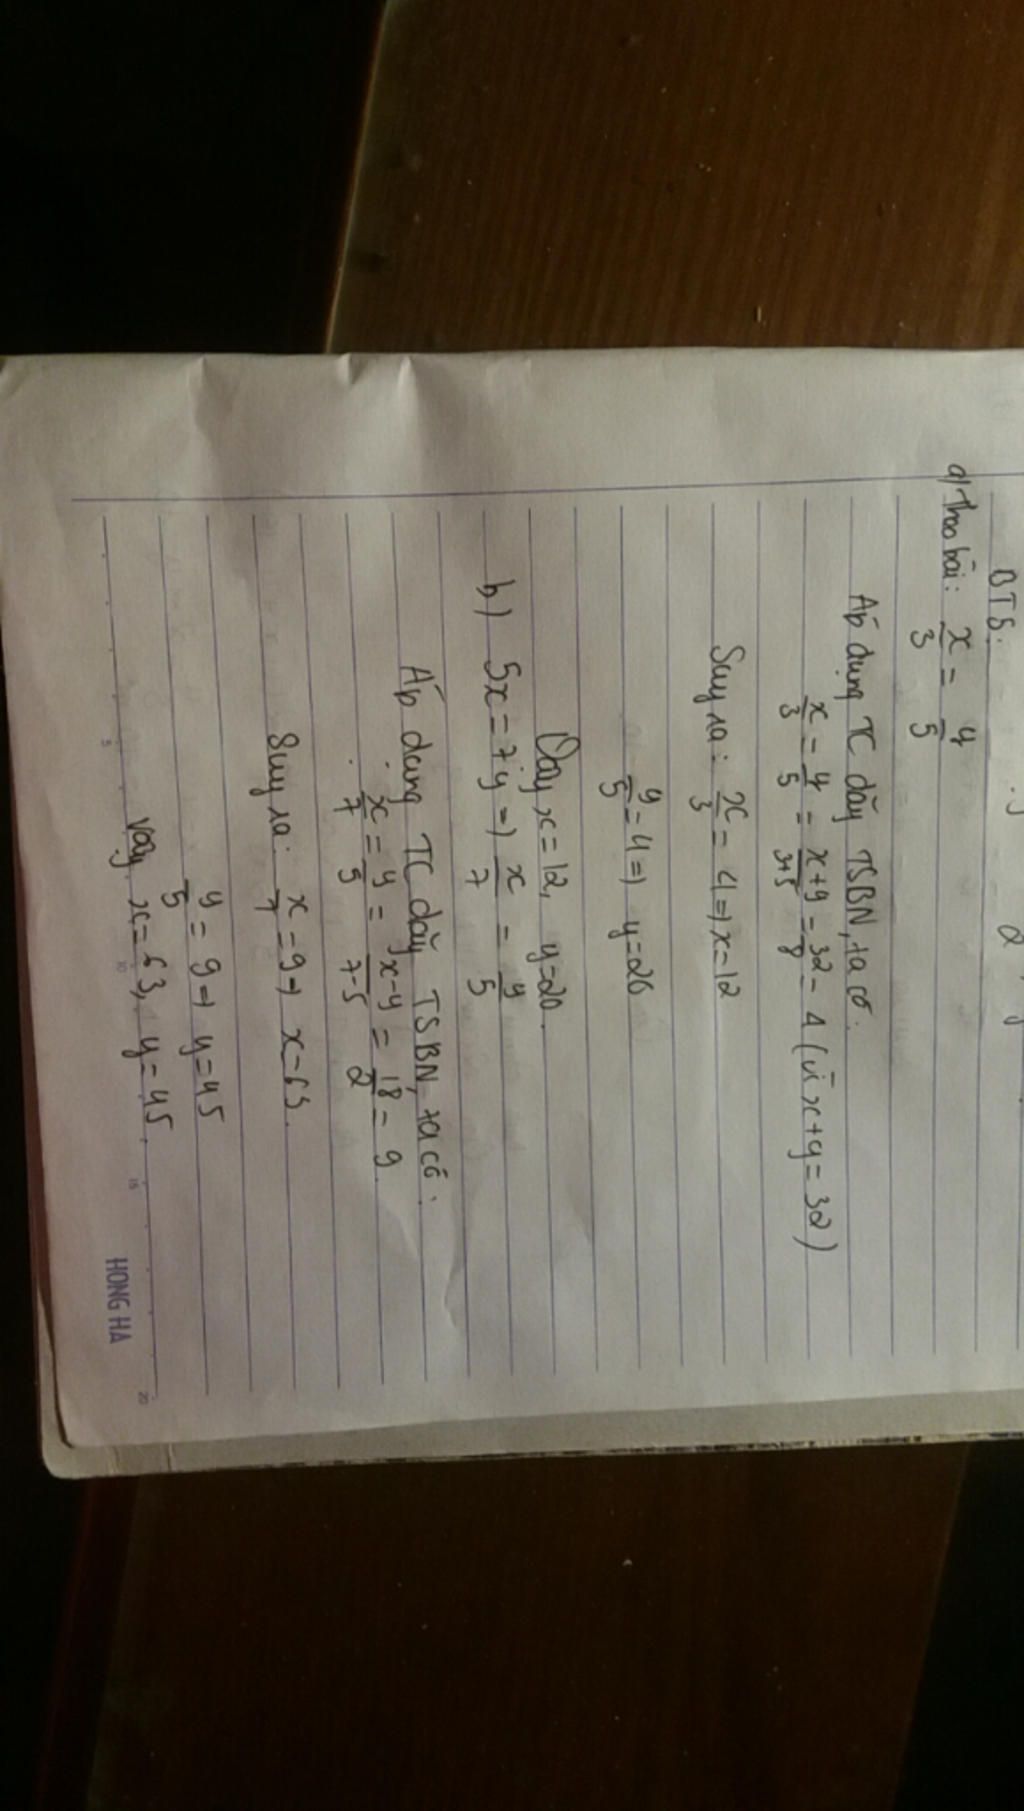 BT5:
a) Theo bài: x/3 = y/5
Áp dụng TC dãy TSBN, ta có:
x/3 = y/5 = x+y/3+5 = 32/8 = 4 (vì x+y = 32)
Suy ra: x/3 = 4 => x=12
y/5 = 4 => y=20
Vậy x=12, y=20.
b) 5x = 7y => x/7 = y/5
Áp dụng TC dãy TSBN, ta có:
x/7 = y/5 = x-y/7-5 = 18/2 = 9
Suy ra: x/7 = 9 => x=63.
y/5 = 9 => y=45
Vậy x=63, y=45.
5 10 15 20
HONG HA